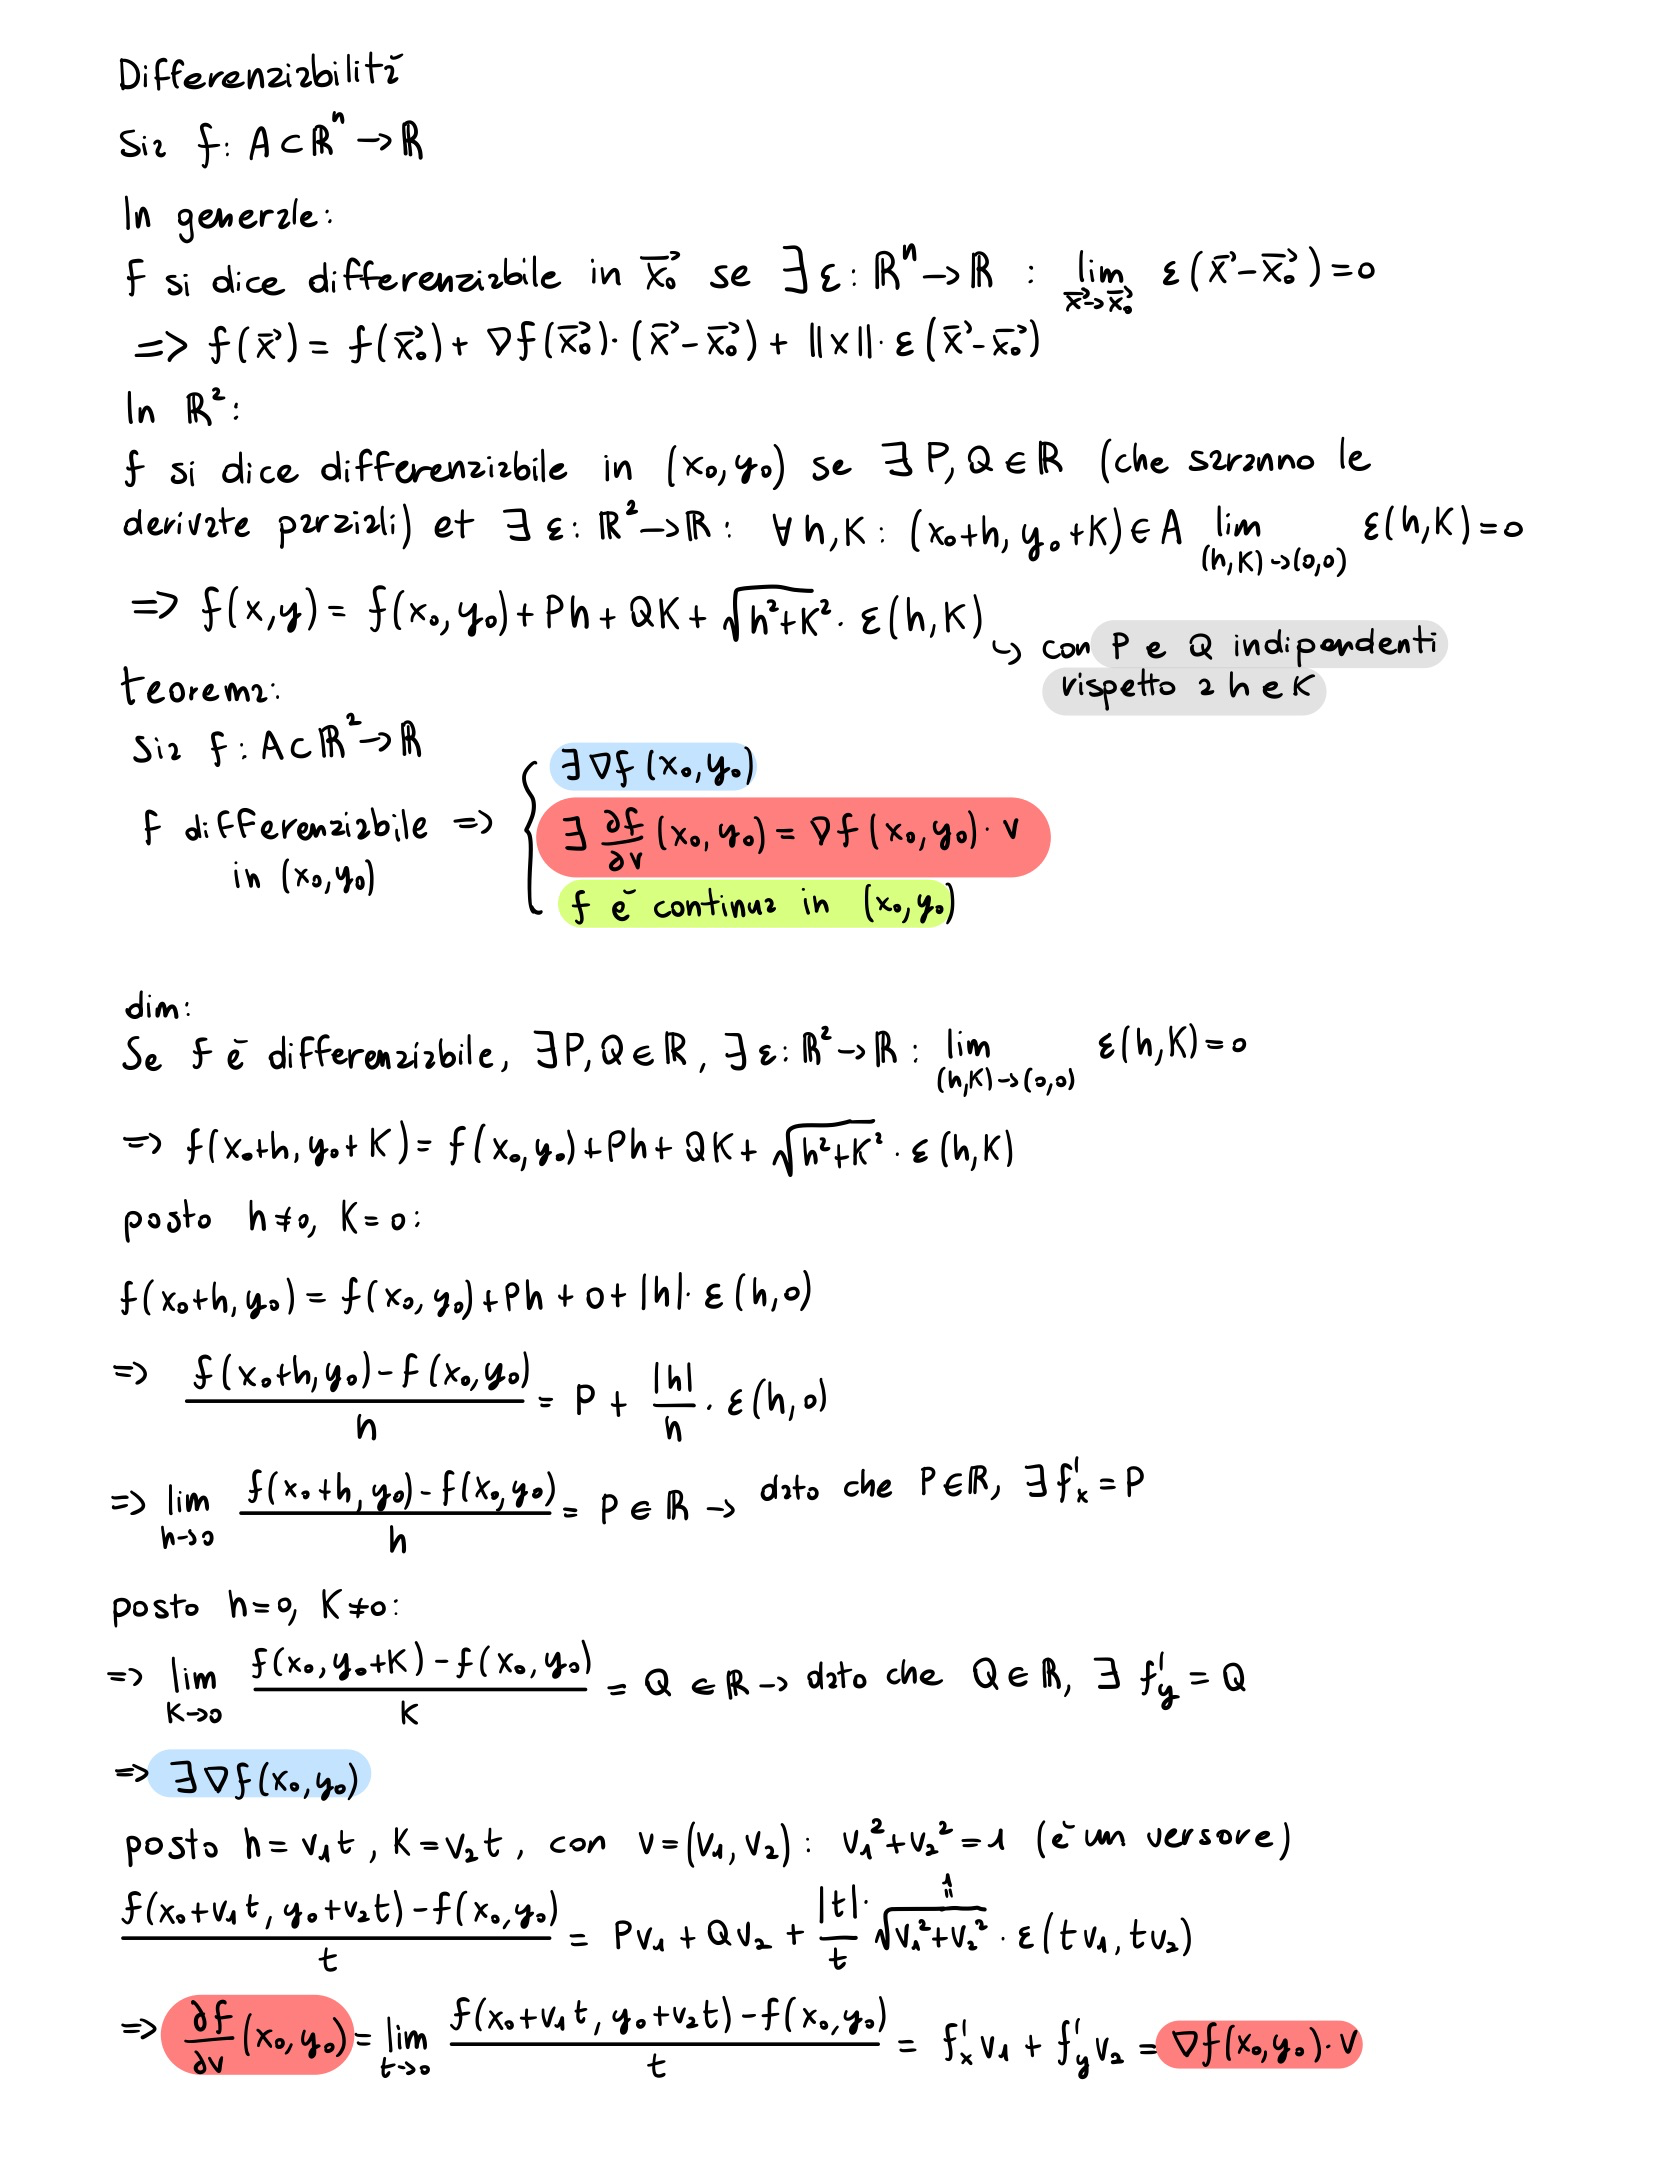 Differenziabilità
Sia f: A⊂ℝⁿ → ℝ
In generale:
f si dice differenziabile in x⃗₀ se ∃ ε: ℝⁿ → ℝ : lim_{x⃗→x⃗₀} ε(x⃗-x⃗₀)=0
=> f(x⃗) = f(x⃗₀) + ∇f(x⃗₀)·(x⃗-x⃗₀) + ||x||·ε(x⃗-x⃗₀)
In ℝ²:
f si dice differenziabile in (x₀,y₀) se ∃ P,Q ∈ ℝ (che saranno le
derivate parziali) et ∃ ε: ℝ² → ℝ: ∀ h,K: (x₀+h, y₀+K) ∈ A lim_{(h,K)→(0,0)} ε(h,K)=0
=> f(x,y) = f(x₀,y₀) + Ph + QK + √(h²+K²) · ε(h,K)
↳ con P e Q indipendenti
rispetto a h e K
teorema:
Sia f: A⊂ℝ² → ℝ
∃ ∇f(x₀,y₀)
f differenziabile => { ∃ ∂f/∂v (x₀,y₀) = ∇f(x₀,y₀)·v
in (x₀,y₀)
f è continua in (x₀,y₀)
dim:
Se f è differenziabile, ∃P,Q ∈ ℝ, ∃ ε: ℝ² → ℝ : lim_{(h,K)→(0,0)} ε(h,K)=0
=> f(x₀+h, y₀+K) = f(x₀,y₀) + Ph + QK + √(h²+K²) · ε(h,K)
posto h≠0, K=0:
f(x₀+h, y₀) = f(x₀,y₀) + Ph + 0 + |h|· ε(h,0)
=> (f(x₀+h,y₀) - f(x₀,y₀))/h = P + |h|/h · ε(h,0)
=> lim_{h→0} (f(x₀+h,y₀) - f(x₀,y₀))/h = P ∈ ℝ → dato che P∈ℝ, ∃ f'ₓ = P
posto h=0, K≠0:
=> lim_{K→0} (f(x₀,y₀+K) - f(x₀,y₀))/K = Q ∈ ℝ → dato che Q∈ℝ, ∃ f'_y = Q
=> ∃ ∇f(x₀,y₀)
posto h = v₁t, K = v₂t, con v=(v₁,v₂): v₁²+v₂²=1 (è un versore)
(f(x₀+v₁t, y₀+v₂t) - f(x₀,y₀))/t = Pv₁ + Qv₂ + |t|/t · √(v₁²+v₂²) [= 1] · ε(tv₁,tv₂)
=> ∂f/∂v (x₀,y₀) = lim_{t→0} (f(x₀+v₁t, y₀+v₂t) - f(x₀,y₀))/t = f'ₓv₁ + f'_y v₂ = ∇f(x₀,y₀)·v